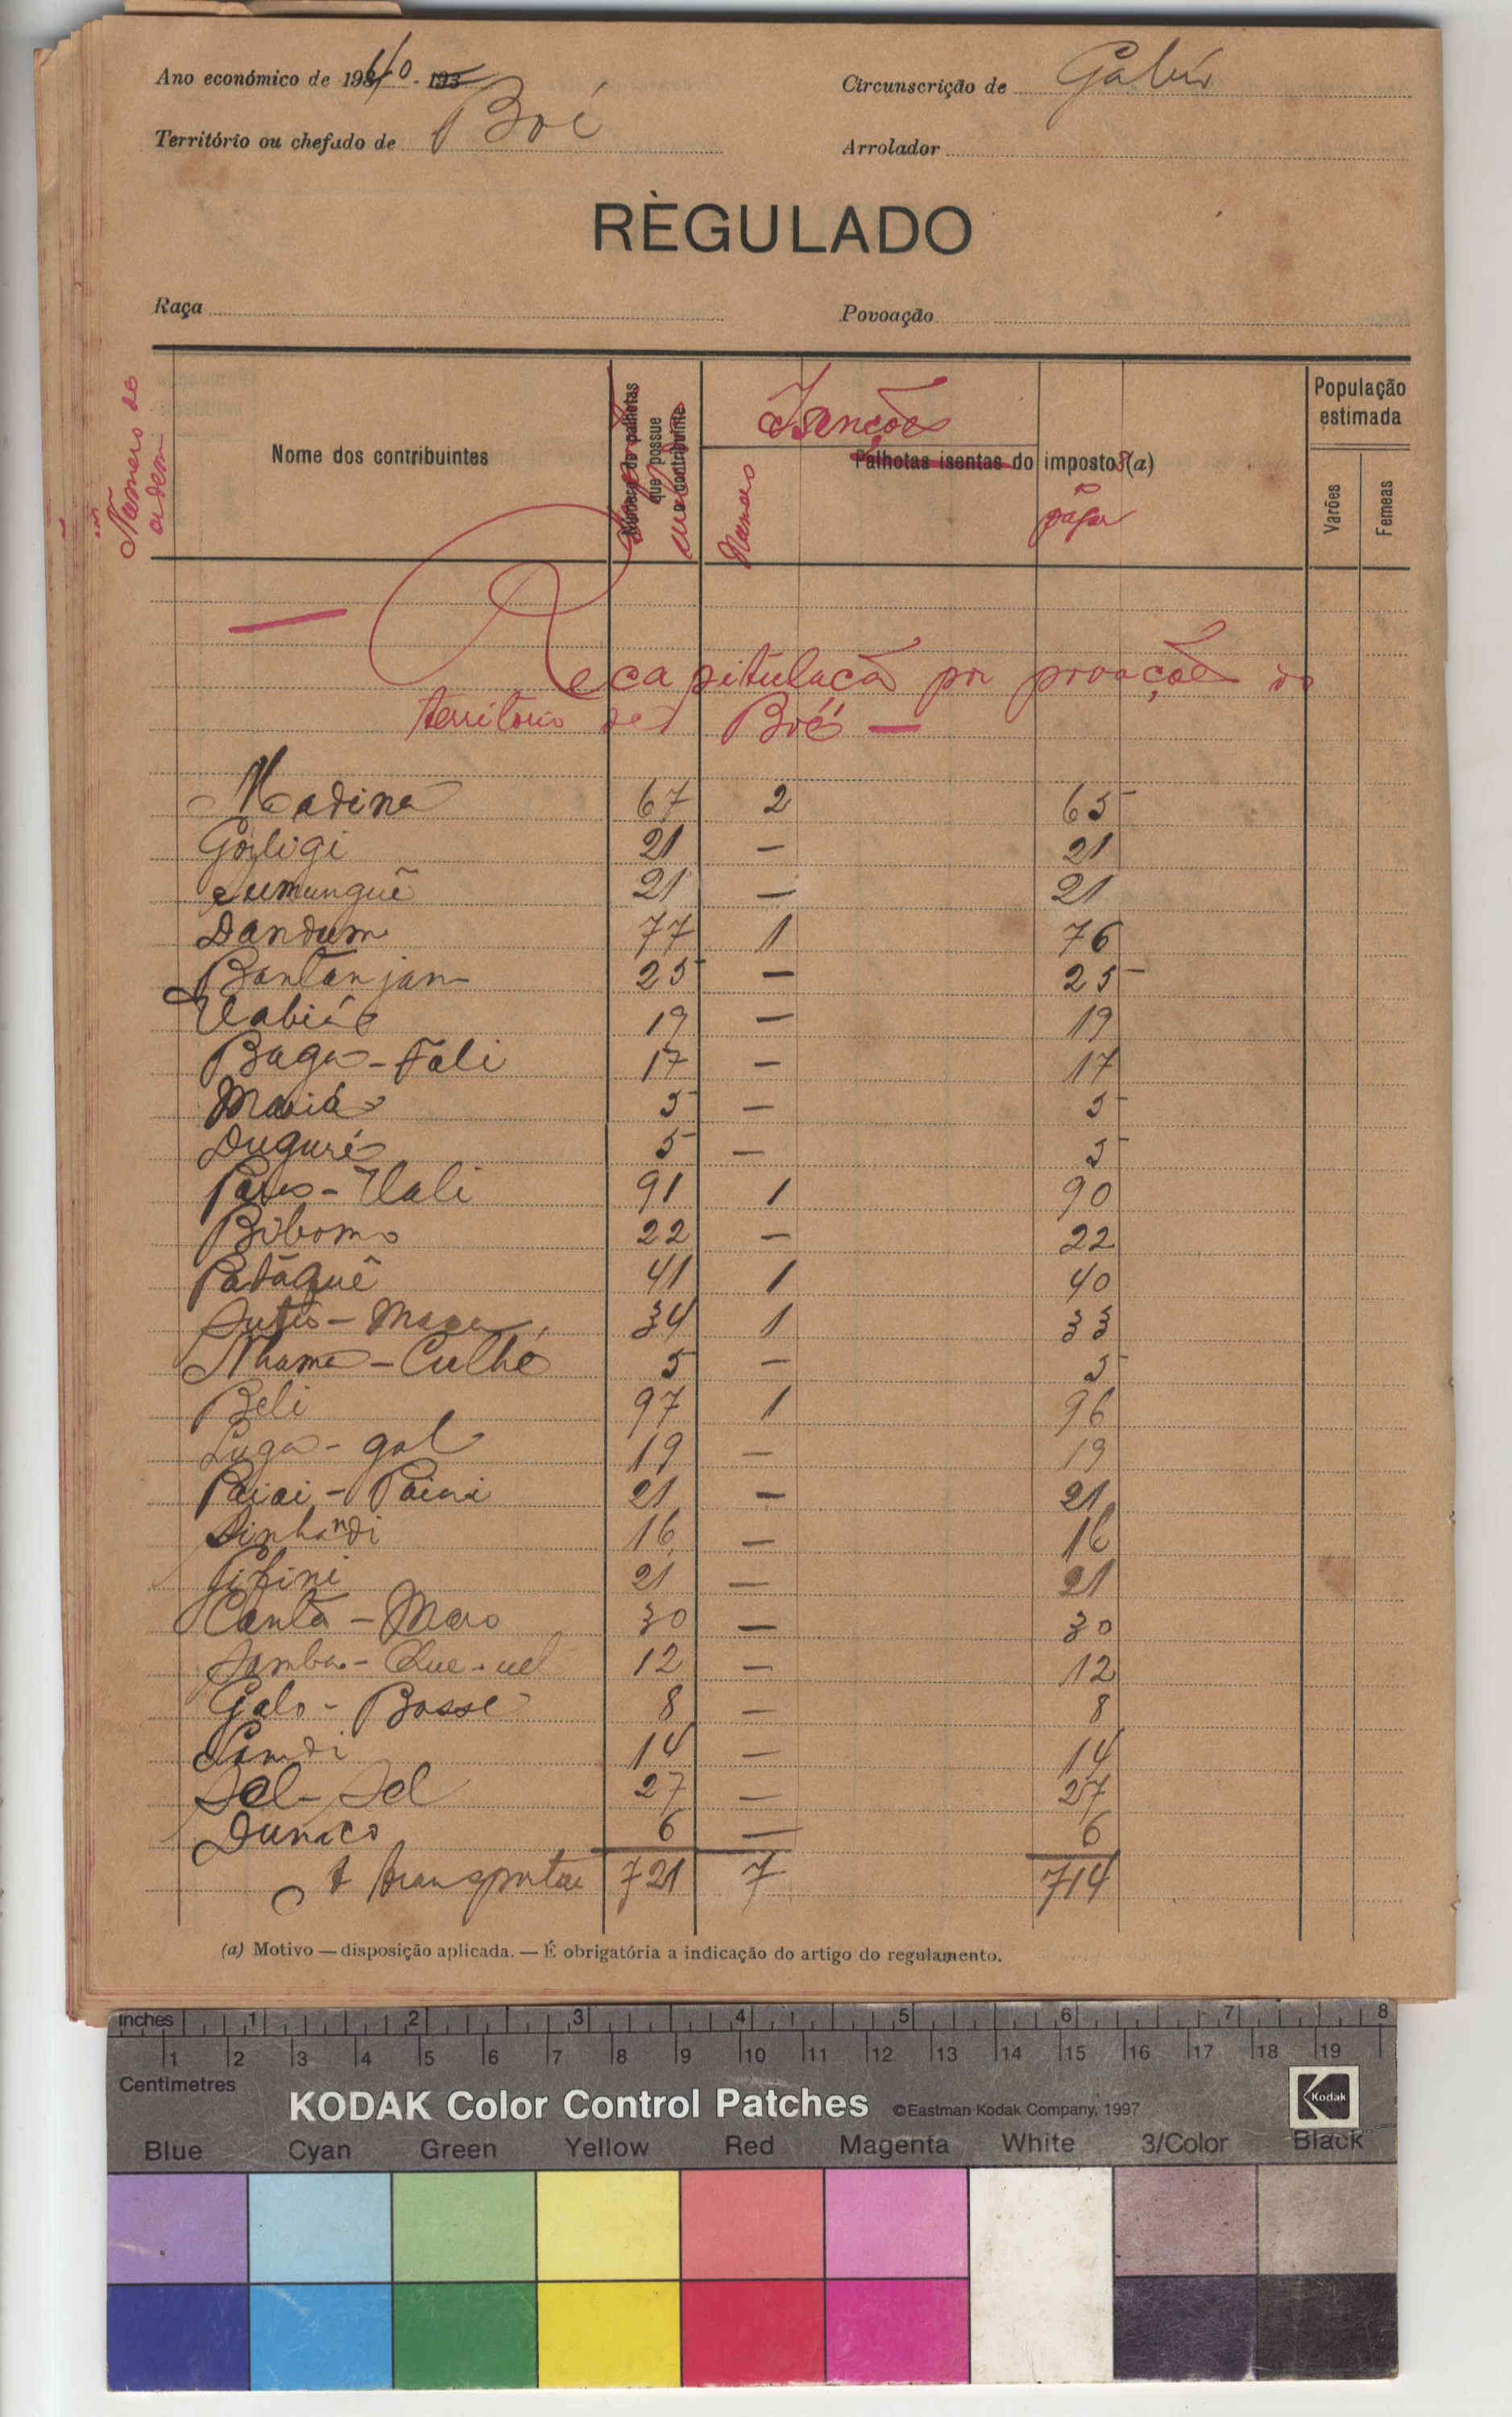 Ano económico de 1940 - 193
Circunscrição de Gabú
Território ou chefado de Boé
Arrolador
RÈGULADO
Raça
Povoação
Numero de ordem
Nome dos contribuintes
Número de palhotas que possue o contribuinte
Isenções
Numero
Palhotas isentas do imposto (a)
População estimada
Varões
Femeas
— Recapitulação por povoações do
território de Boé —
Madina 67 2 65
21 — 21
21 — 21
Dandum 77 1 76
Bantanjam 25 — 25
19 — 19
Baga-Fali 17 — 17
5 — 5
Duguré 5 — 5
91 1 90
22 — 22
Patáquê 41 1 40
34 1 33
Nhama-Culhe 5 — 5
Beli 97 1 96
Luga-gal 19 — 19
21 — 21
Sinhandi 16 — 16
Gifini 21 — 21
Canta-Maro 30 — 30
12 — 12
Galo-Bosse 8 — 8
14 — 14
Sel-Sel 27 — 27
6 — 6
A transportar 721 7 714
(a) Motivo — disposição aplicada. — É obrigatória a indicação do artigo do regulamento.
inches 1 2 3 4 5 6 7 8
1 2 3 4 5 6 7 8 9 10 11 12 13 14 15 16 17 18 19
Centimetres
KODAK Color Control Patches ©Eastman Kodak Company, 1997 Kodak
Blue Cyan Green Yellow Red Magenta White 3/Color Black